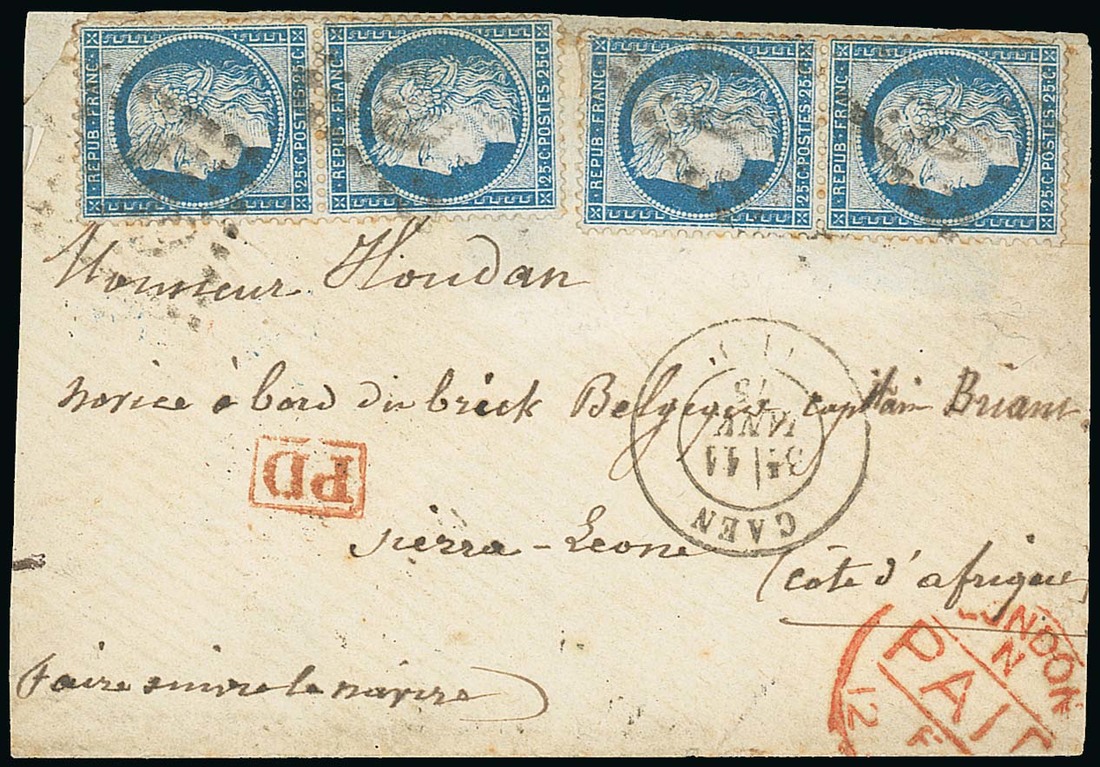 REPUB·FRANC·
25·C·POSTES·25·C
REPUB·FRANC·
25·C·POSTES·25·C
REPUB·FRANC·
25·C·POSTES·25·C
REPUB·FRANC·
25·C·POSTES·25·C
Monsieur Houdan
novice à bord du brick Belgique capitain Briant
PD
3E 11
JANV
73
CAEN
sierra-Leone
(côte d'afrique
faire suivre le navire
LONDON
N
PAI
12